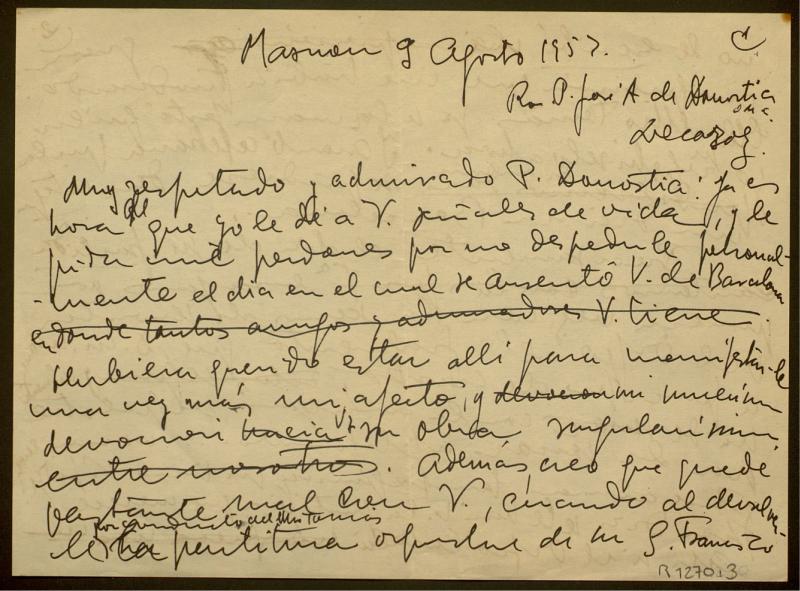 Masnou 9 Agosto 1957.
P. José A. de Donostia
Lecaroz.
Muy respetado y admirado P. Donostia: Ya es
hora que yo le dé a V. señales de vida, y le
pida mil perdones por no despedirle personal-
mente el día en el cual se ausentó V. de Barcelona
en donde tantos amigos y admiradores V. tiene.
Hubiera querido estar allí para manifestarle
una vez más mi afecto, y devocion mi
devocion hacia V. y su obra singularísima,
entre nosotros. Además, creo que quedé
bastante mal con V., cuando al devolver-
por conducto del Mtro Tomás
le la partitura orquestal de su S. Francisco
R 127013